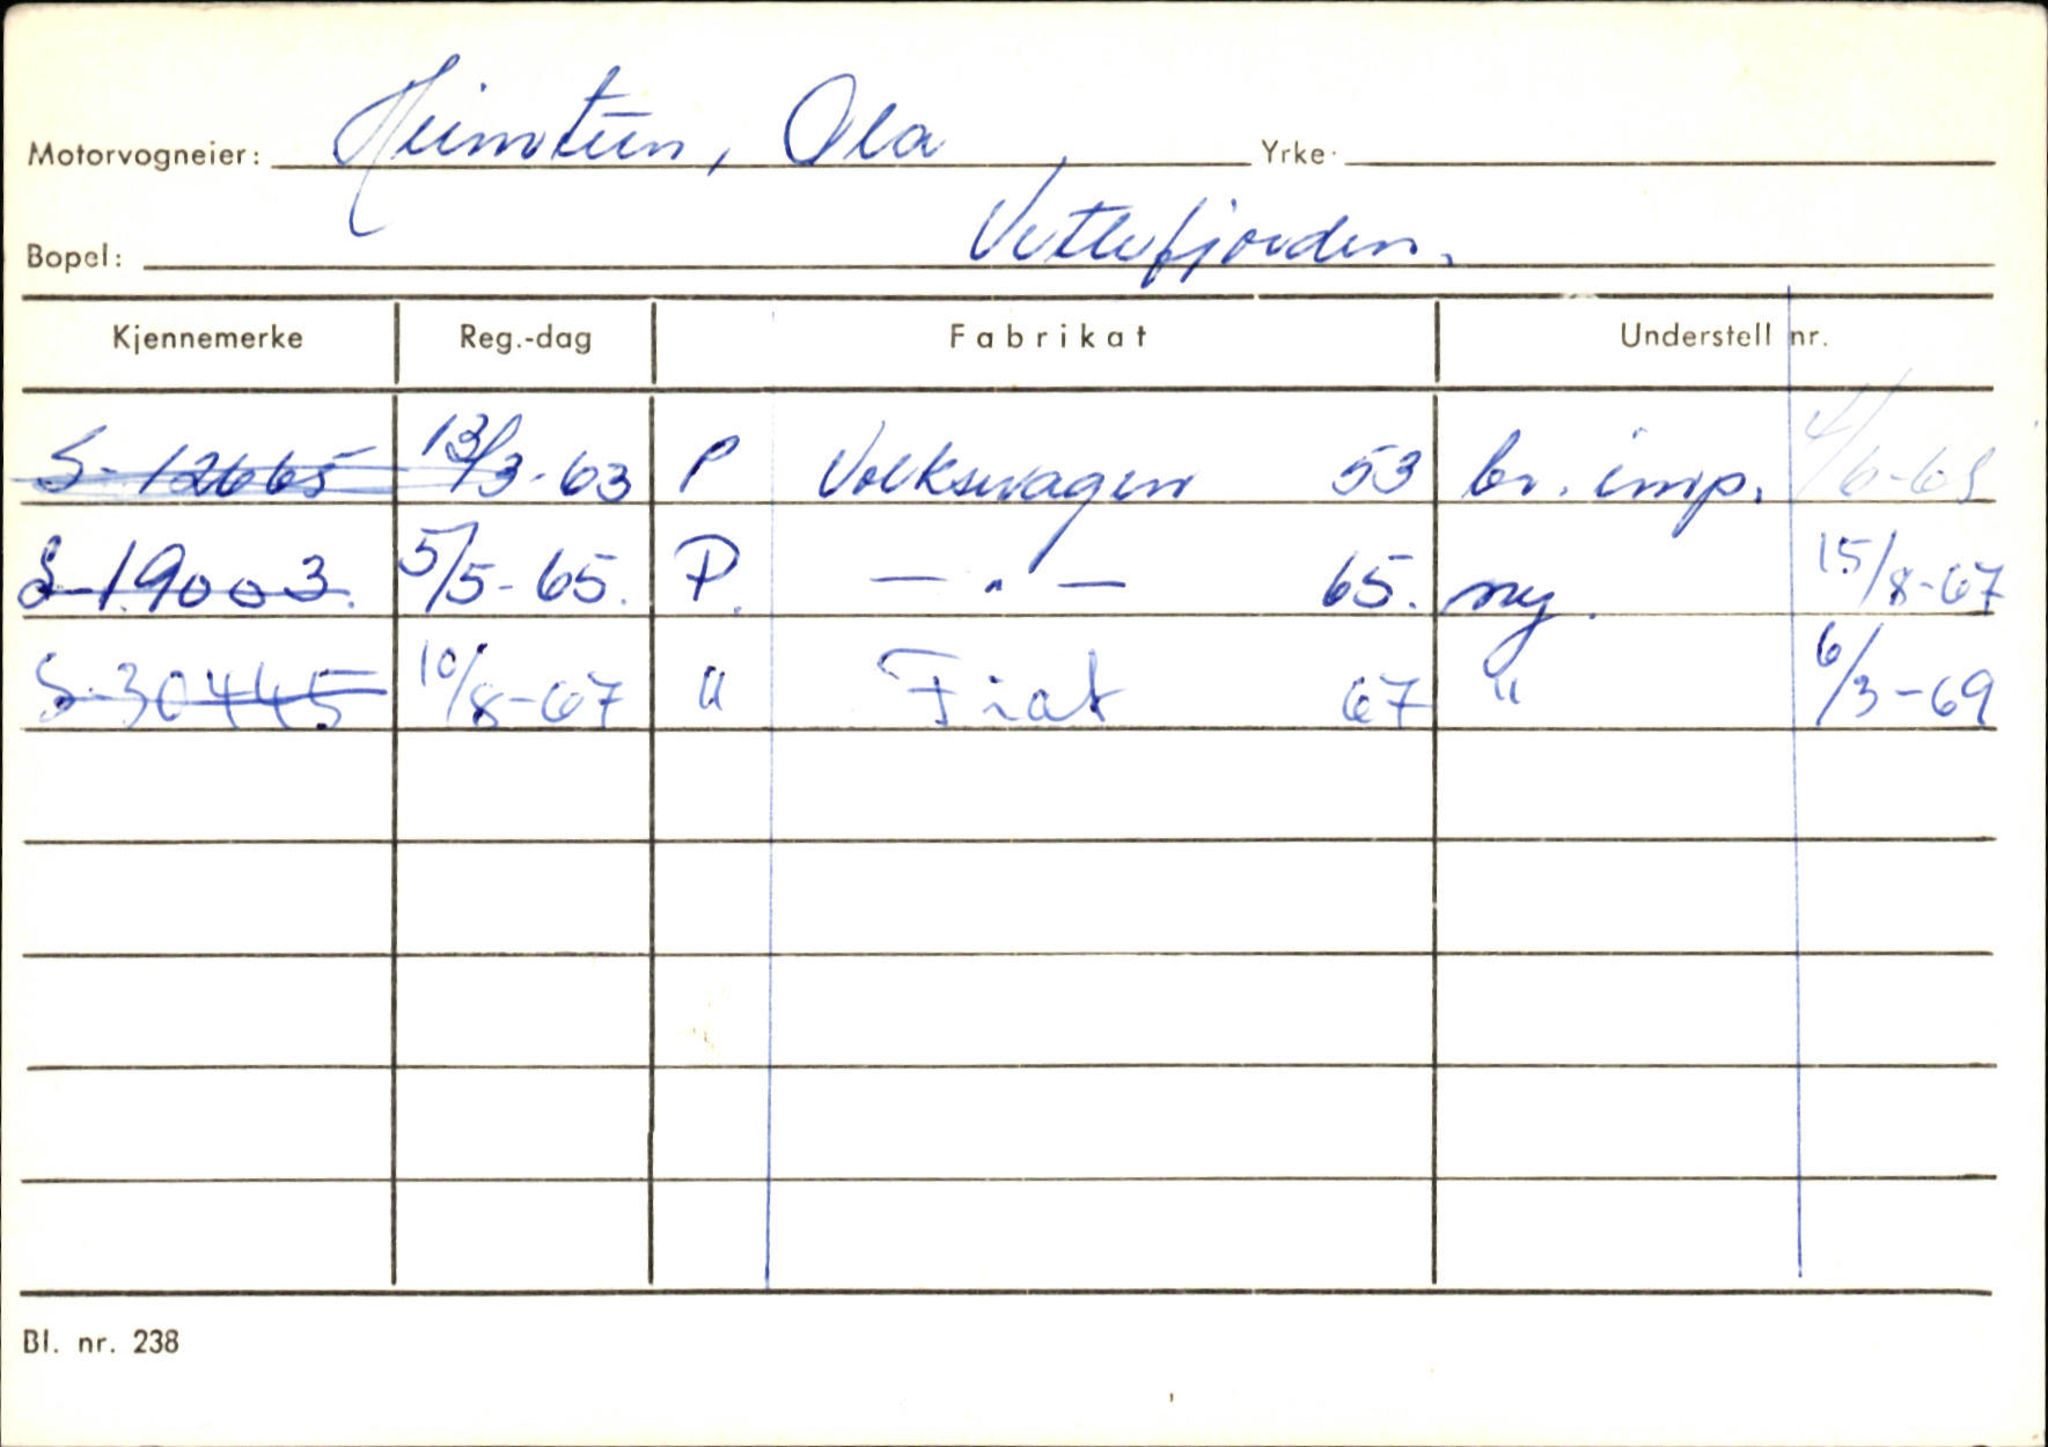 Motorvogneier: Heimtun, Ola Yrke.
Bopel: Vetlefjorden.
Kjennemerke Reg.-dag Fabrikat Understell nr.
S-12665 13/3-63 P Volkswagen 53 br. imp. 4/6-65
S-19003. 5/5-65. P. — " — 65. ny. 15/8-67
S-30445 10/8-67 " Fiat 67 " 6/3-69
Bl. nr. 238